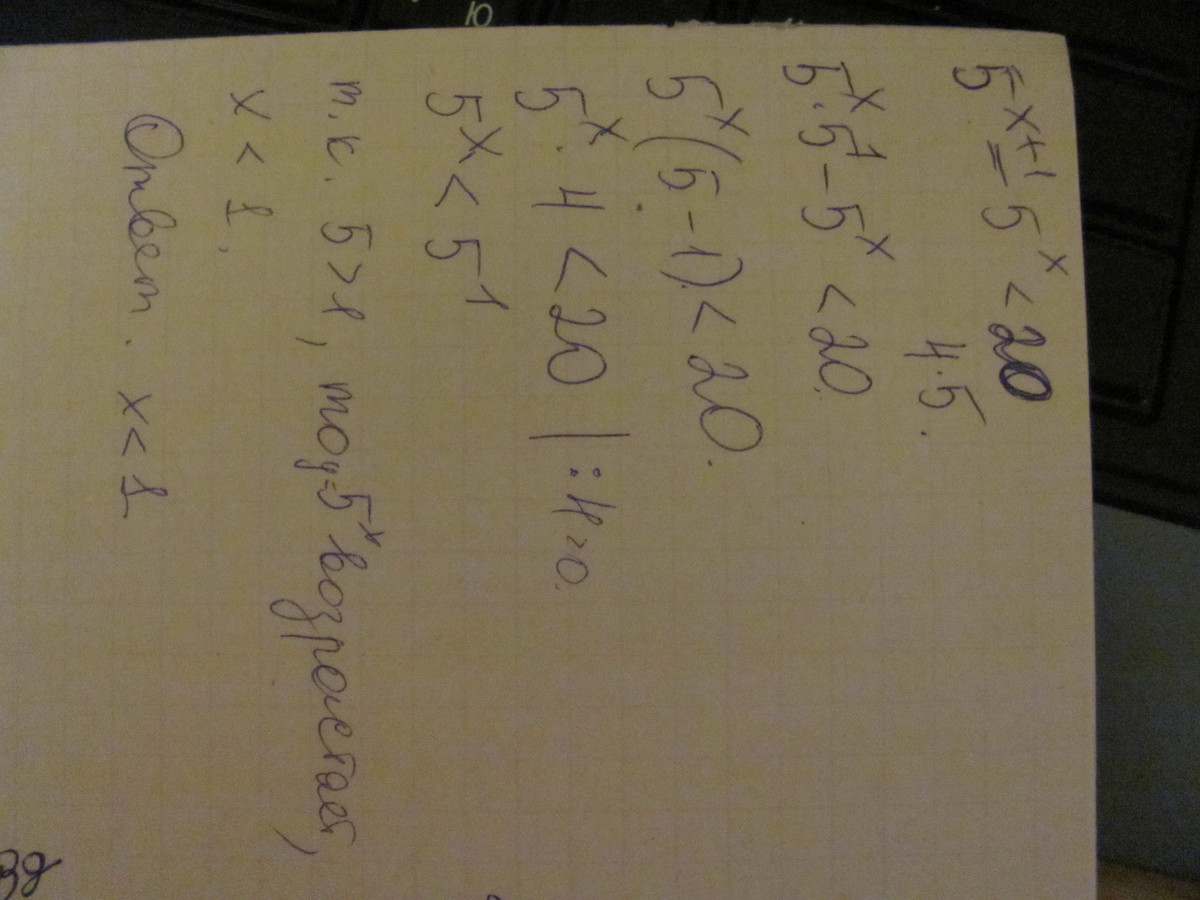 5^{x+1} - 5^x < 20
4·5.
5^x·5^1 - 5^x < 20.
5^x(5-1) < 20.
5^x·4 < 20 | :4>0.
5^x < 5^1
т.к. 5>1, то y=5^x возрастает,
x < 1.
Ответ. x < 1